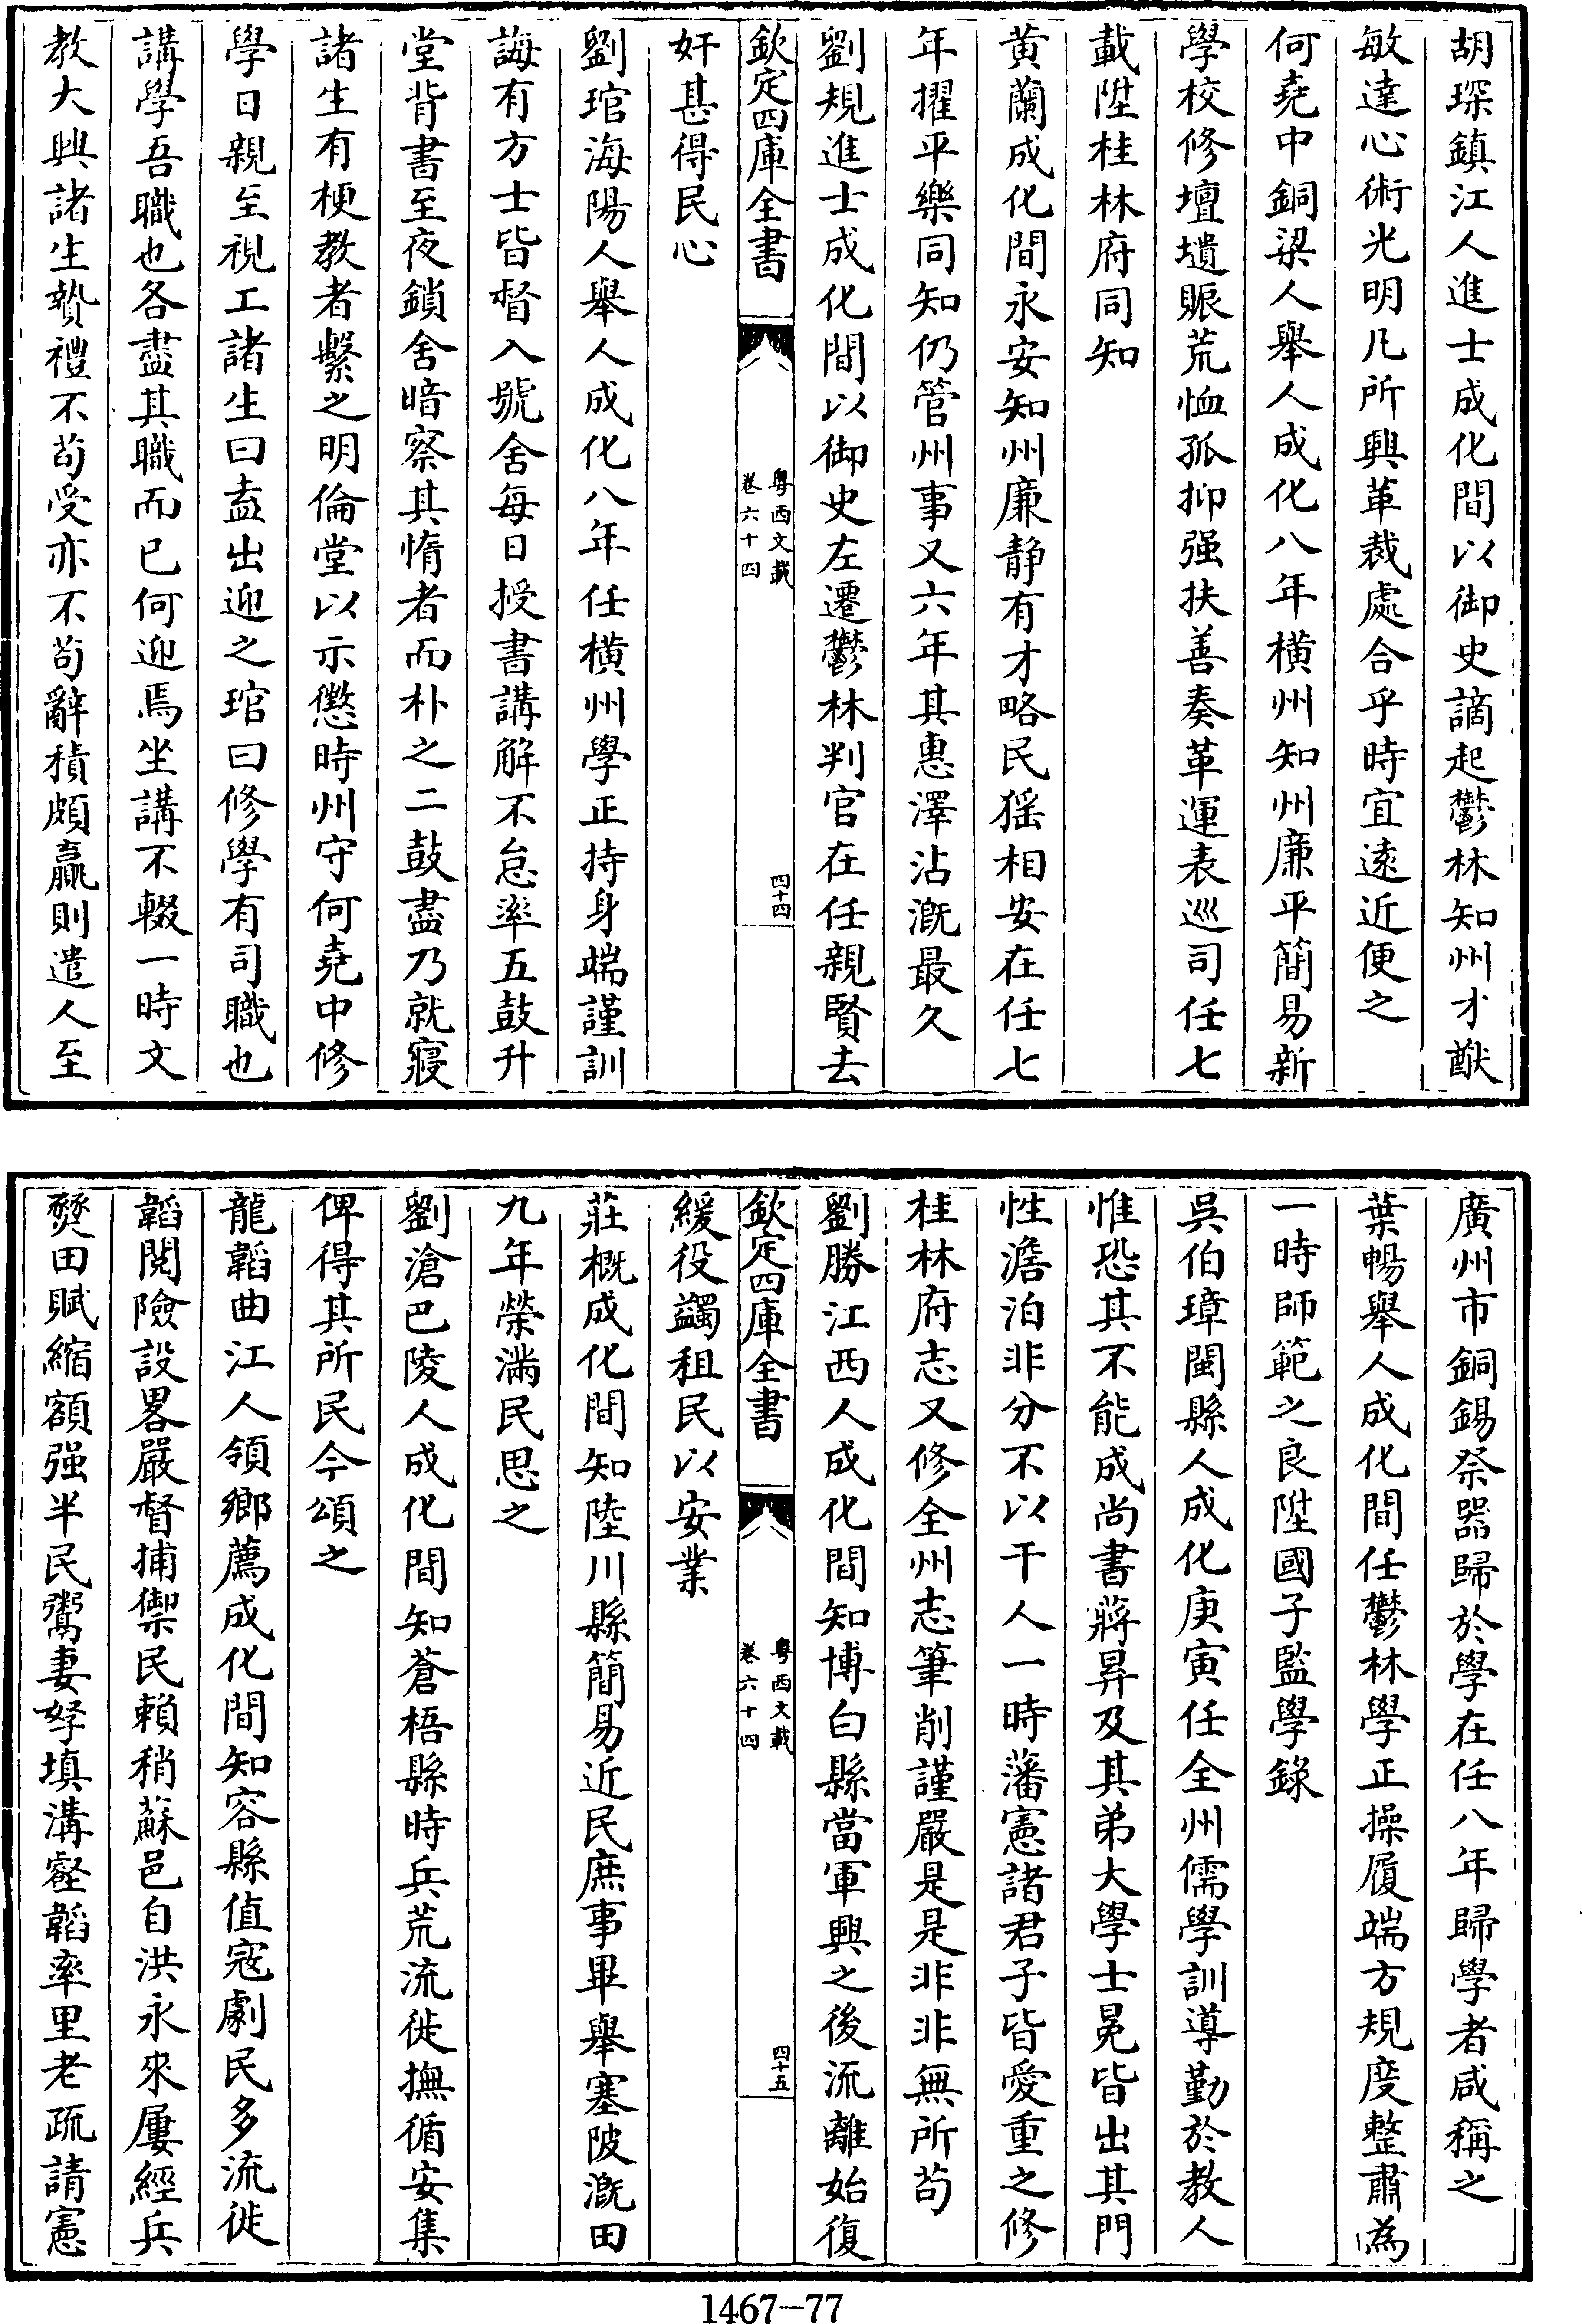 胡琛鎮江人進士成化間以御史謫起鬱林知州才猷
敏達心術光明凡所興革裁處合乎時宜遠近便之
何堯中銅梁人舉人成化八年橫州知州廉平簡易新
學校修壇壝賑荒恤孤抑强扶善奏革運表巡司任七
載陞桂林府同知
黄蘭成化間永安知州廉静有才略民猺相安在任七
年擢平樂同知仍管州事又六年其惠澤沾溉最久
劉規進士成化間以御史左遷鬱林判官在任親賢去
欽定四庫全書
粤西文載
卷六十四
四十四
奸甚得民心
劉琯海陽人舉人成化八年任橫州學正持身端謹訓
誨有方士皆督入號舍每日授書講解不怠率五鼓升
堂背書至夜鎖舍暗察其惰者而朴之二鼓盡乃就寢
諸生有梗教者繫之明倫堂以示懲時州守何堯中修
學日親至視工諸生曰盍出迎之琯曰修學有司職也
講學吾職也各盡其職而已何迎焉坐講不輟一時文
教大興諸生贄禮不苟受亦不苟辭積頗贏則遣人至
廣州市銅錫祭器歸於學在任八年歸學者咸稱之
葉暢舉人成化間任鬱林學正操履端方規度整肅為
一時師範之良陞國子監學錄
吳伯璋閩縣人成化庚寅任全州儒學訓導勤於教人
惟恐其不能成尚書蔣昇及其弟大學士冕皆出其門
性澹泊非分不以干人一時藩憲諸君子皆愛重之修
桂林府志又修全州志筆削謹嚴是是非非無所苟
劉勝江西人成化間知博白縣當軍興之後流離始復
欽定四庫全書
粤西文載
卷六十四
四十五
緩役蠲租民以安業
莊概成化間知陸川縣簡易近民庶事畢舉塞陂溉田
九年榮滿民思之
劉滄巴陵人成化間知蒼梧縣時兵荒流徙撫循安集
俾得其所民今頌之
龍韜曲江人領鄉薦成化間知容縣值寇劇民多流徙
韜閱險設畧嚴督捕禦民賴稍蘇邑自洪永來屢經兵
燹田賦縮額强半民鬻妻孥填溝壑韜率里老疏請憲
1467—77